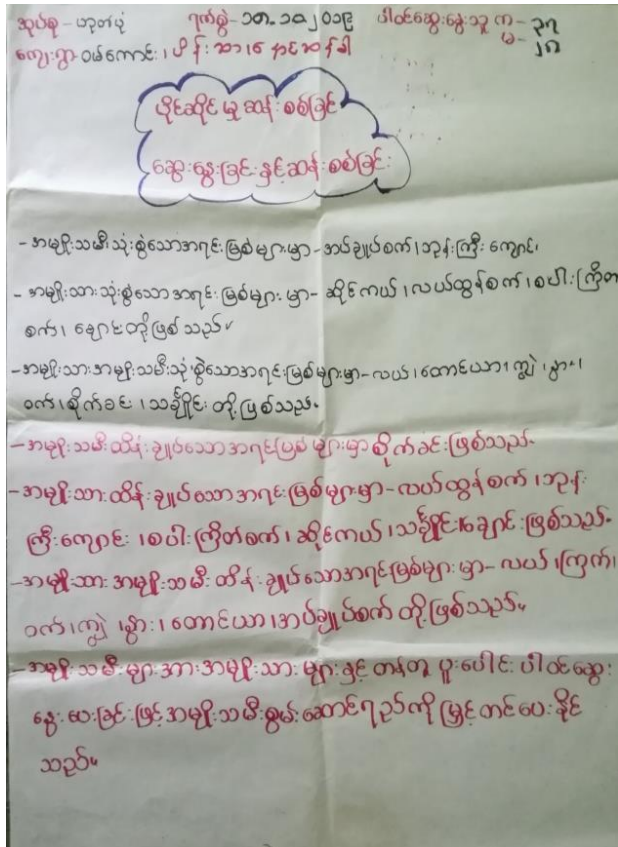 အုပ်စု - ဟုတ်ပုံ ရက်စွဲ - ၁၈.၁၁.၂၀၁၉ ပါဝင်ဆွေးနွေးသူ ကျ - ၃၇
ကျေးရွာ - ဝမ်ကောင်း၊ မ - ၂၈
ပိုင်ဆိုင်မှုဆန်းစစ်ခြင်း
ဆွေးနွေးခြင်းနှင့်ဆန်းစစ်ခြင်း
- အမျိုးသမီးသုံးစွဲသောအရင်းမြစ်များမှာ - အပ်ချုပ်စက်၊ ဘုန်းကြီးကျောင်း၊
- အမျိုးသားသုံးစွဲသောအရင်းမြစ်များမှာ - ဆိုင်ကယ်၊ လယ်ထွန်စက်၊ စပါးကြိတ်
စက်၊ ချောင်းတို့ဖြစ်သည်။
- အမျိုးသားအမျိုးသမီးသုံးစွဲသောအရင်းမြစ်များမှာ - လယ်၊ တောင်ယာ၊ ကျွဲ၊ နွား၊
ဝက်၊ စိုက်ခင်း၊ သင်္ချိုင်းတို့ဖြစ်သည်။
- အမျိုးသမီးထိန်းချုပ်သောအရင်းမြစ်များမှာစိုက်ခင်းဖြစ်သည်။
- အမျိုးသားထိန်းချုပ်သောအရင်းမြစ်များမှာ - လယ်ထွန်စက်၊ ဘုန်း
ကြီးကျောင်း၊ စပါးကြိတ်စက်၊ ဆိုင်ကယ်၊ သင်္ချိုင်း၊ ချောင်းဖြစ်သည်။
- အမျိုးသားအမျိုးသမီးထိန်းချုပ်သောအရင်းမြစ်များမှာ - လယ်၊ ကြက်၊
ဝက်၊ ကျွဲ၊ နွား၊ တောင်ယာ၊ အပ်ချုပ်စက်တို့ဖြစ်သည်။
- အမျိုးသမီးများအားအမျိုးသားများနှင့်တန်းတူပူးပေါင်းပါဝင်ဆွေး
နွေးပေးခြင်းဖြင့်အမျိုးသမီးစွမ်းဆောင်ရည်ကိုမြှင့်တင်ပေးနိုင်
သည်။